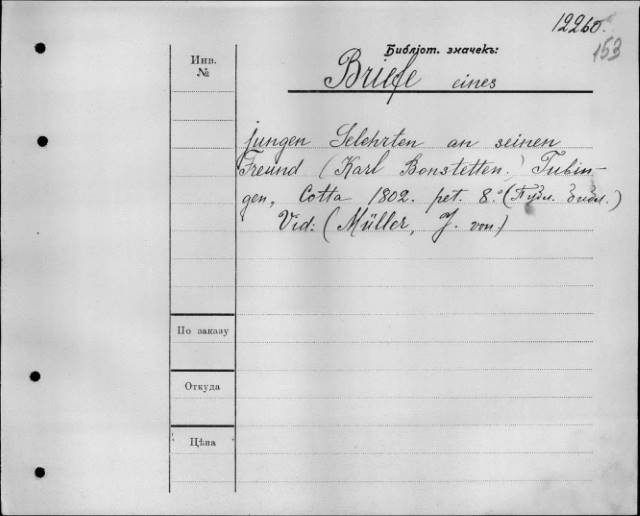 12260.
153
Библіот. значекъ:
Инв.
№
Briefe eines
jungen Gelehrten an seinen
Freund (Karl Bonstetten.) Tubin-
gen, Cotta 1802. pet. 8.° (Публ. библ.)
Vid: (Müller, J. von)
По заказу
Откуда
Цѣна